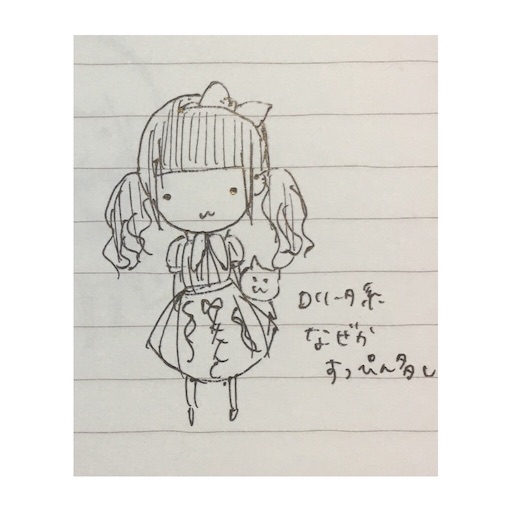 ロリータ系
なぜか
すっぴん多し